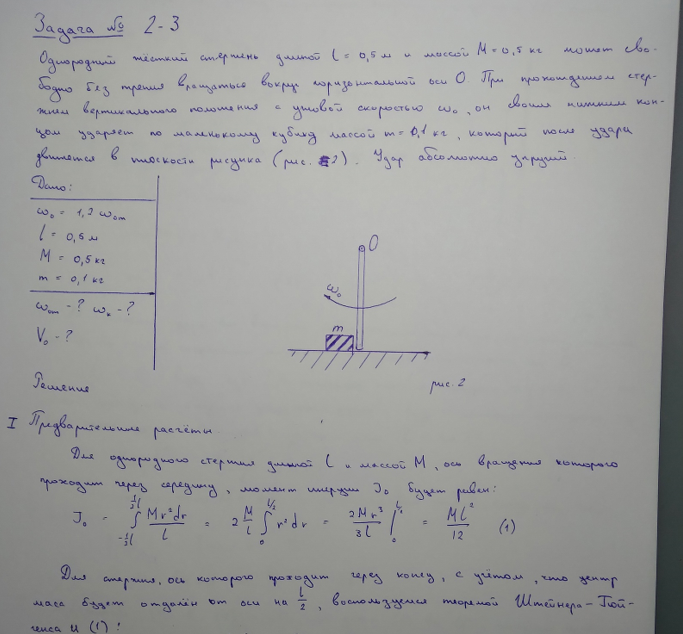 Задача № 2-3
Однородный жёсткий стержень длиной l = 0,5 м и массой M = 0,5 кг может сво-
бодно без трения вращаться вокруг горизонтальной оси O. При прохождении стер-
жнем вертикального положения с угловой скоростью ω₀, он своим нижним кон-
цом ударяет по маленькому кубику массой m = 0,1 кг, который после удара
движется в плоскости рисунка (рис. 2). Удар абсолютно упругий.
Дано:
l = 0,5 м
M = 0,5 кг
m = 0,1 кг
V₀ - ?
O
ω₀
m
рис. 2
Решение
I Предварительные расчёты
Для однородного стержня длиной l и массой M, ось вращения которого
проходит через середину, момент инерции J₀ будет равен:
J₀ = ∫_{-½l}^{½l} Mr²dr/l = 2 M/l ∫_0^{l/2} r²dr = 2Mr³/3l |_0^{l/2} = Ml²/12 (1)
Для стержня, ось которого проходит через конец, с учётом, что центр
масс будет отдалён от оси на l/2, воспользуемся теоремой Штейнера-Гюй-
генса и (1):